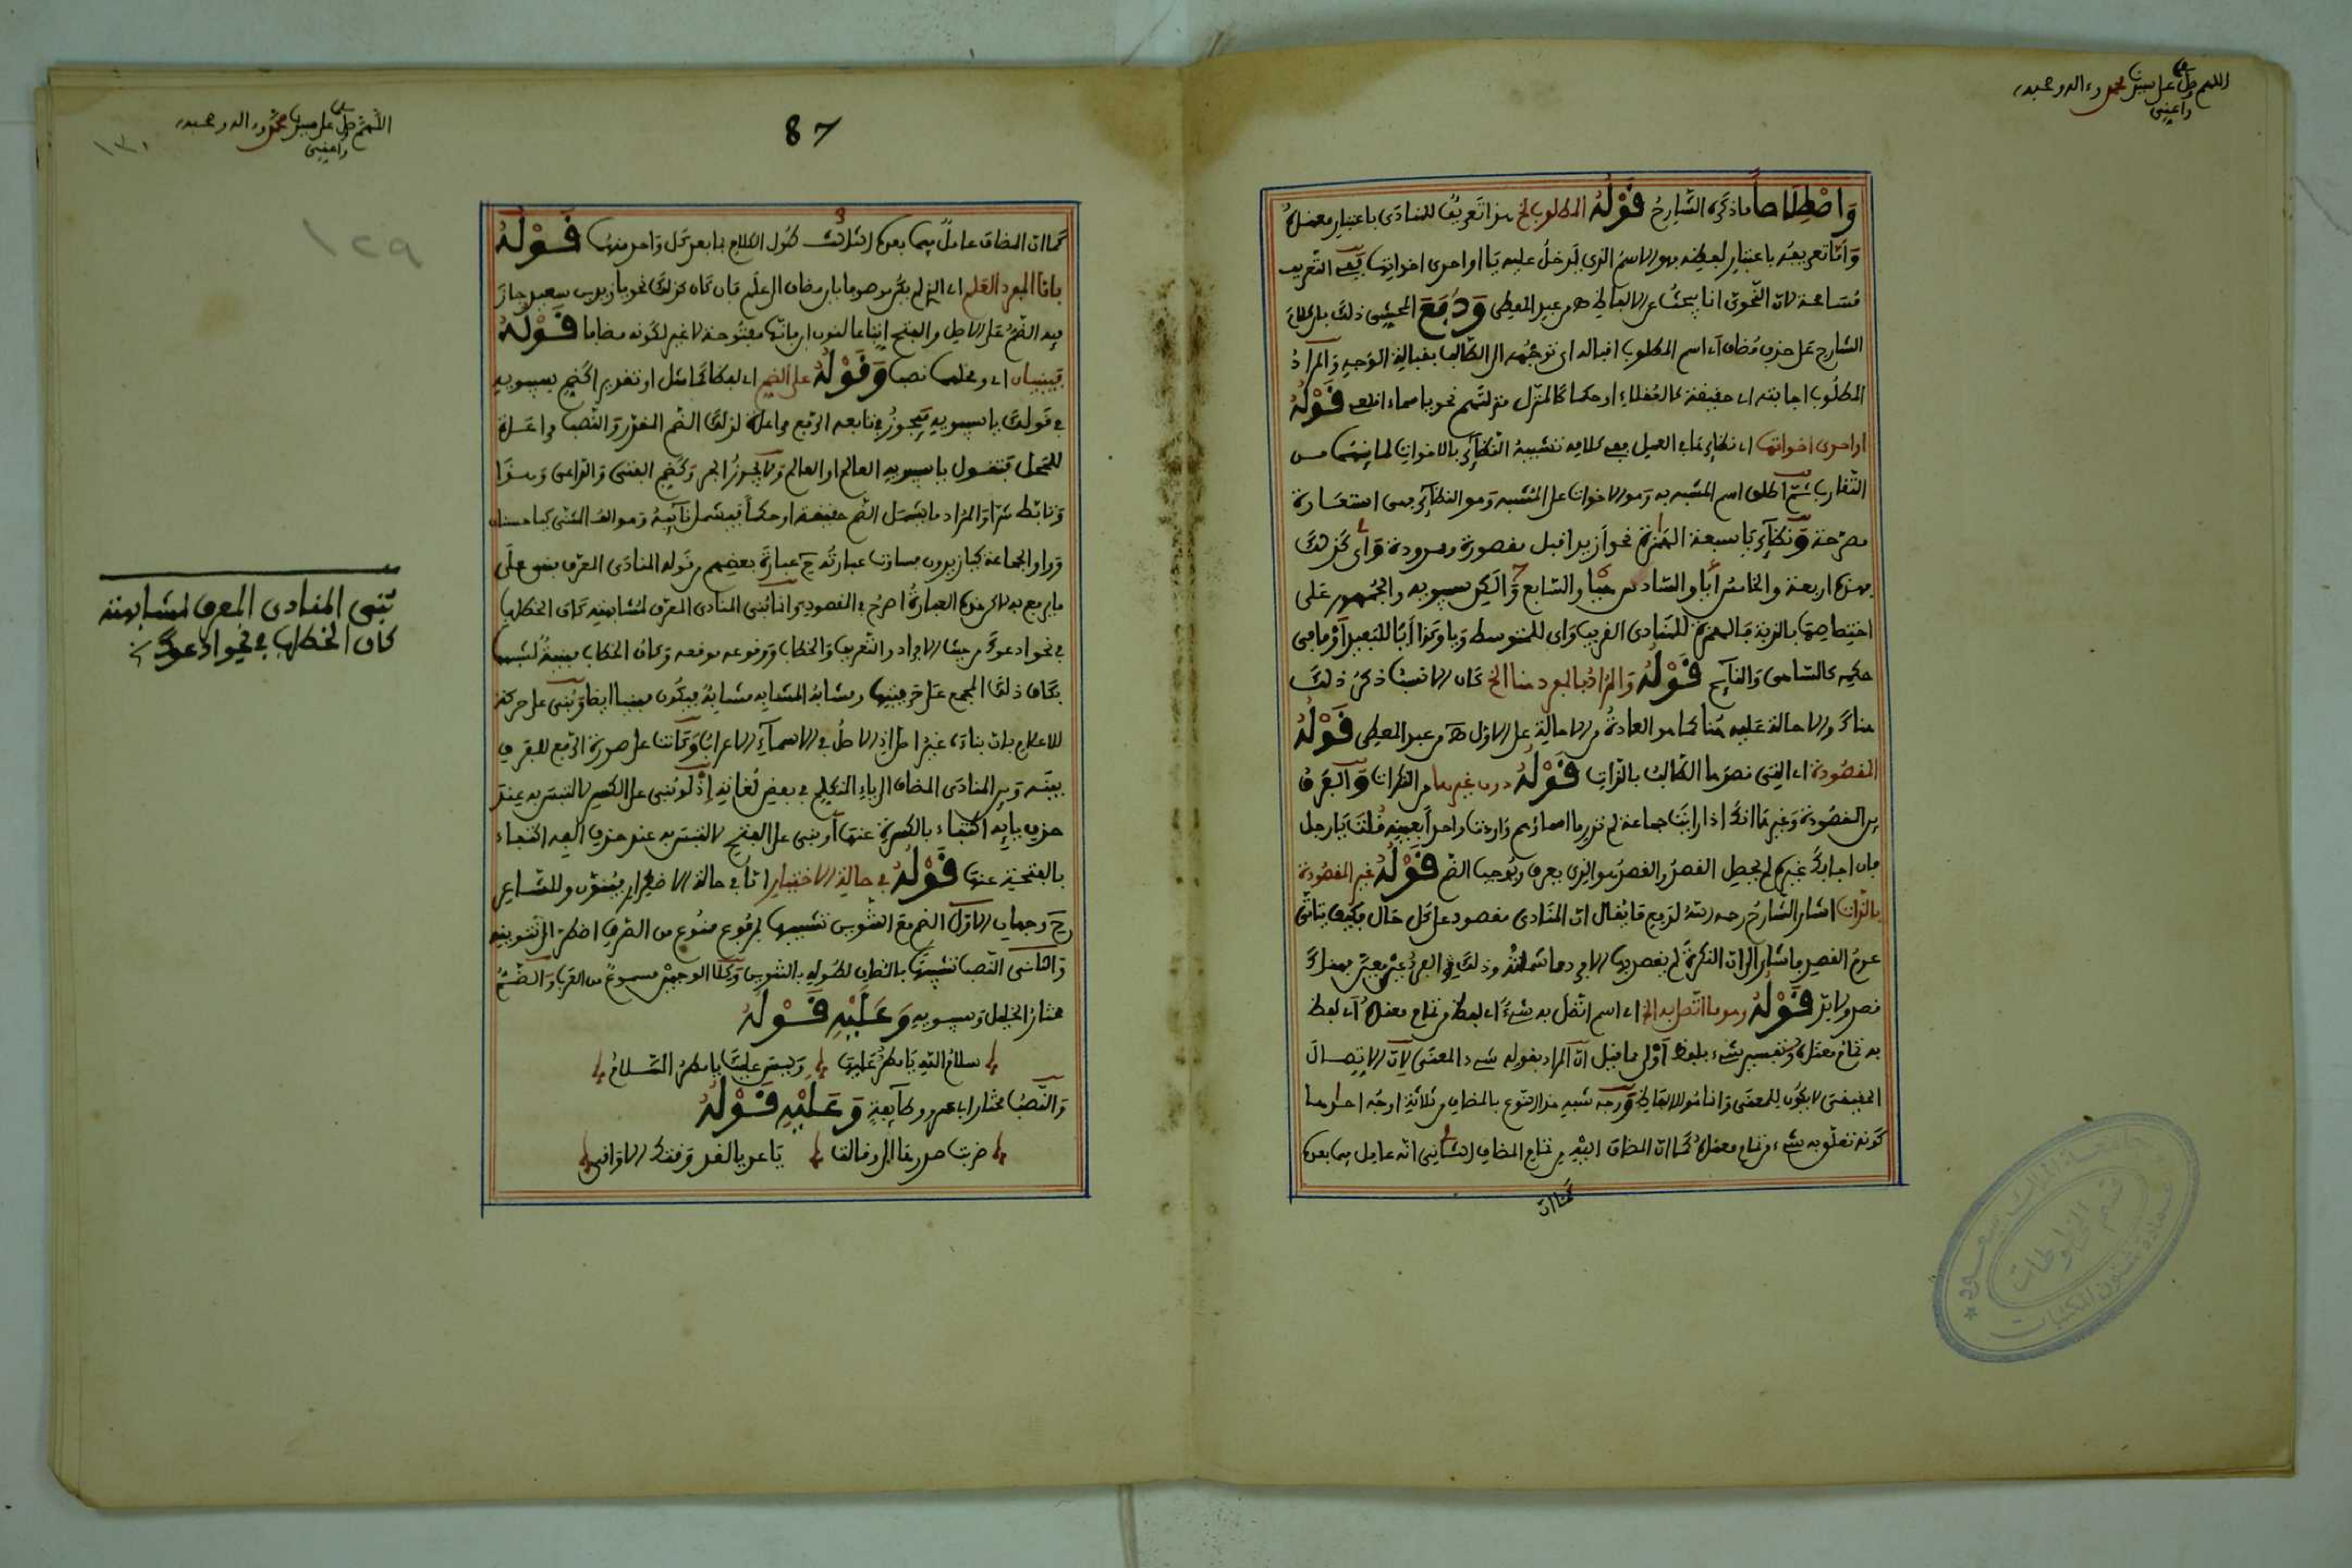 اللهم صل على سيدنا محمد وءاله وصحبه
واصطلاحا ما ذكره الشارح قوله المطلوب الخ هذا تعريف للمنادى باعتبار معناه
واما تعريفه باعتبار لفظه فهو الاسم الذي تدخل عليه يا او احدى اخواتها ففي التعريف
مسامحة لان النحوي انما يبحث عن الالفاظ اه من عبد المعطى ودفع المحشي ذلك بان كلام
الشارح على حذف مضاف اي اسم المطلوب اقباله اي توجهه الى الطالب بقبالة الوجه والمراد
المطلوب اجابته اي حقيقة كالعقلاء او حكما كالمنزل منزلتهم نحو يا سماء اقلعي قوله
او احدى اخواتها اي نظائرها في العمل ففي كلامه تشبيه النظائر بالاخوات لما بينهما من
التقارب ثم اطلق اسم المشبه به وهو الاخوات على المشبه وهو النظائر فهي استعارة
مصرحة ونظائر يا سبعة الهمزة نحو ازيد اقبل مقصورة وممدودة واي كذلك
فهذه اربعة والخامس أيا والسادس هيا والسابع وا لكن سيبويه والجمهور على
اختصاصها بالندبة فالهمزة للمنادى القريب واي للمتوسط ويا وكذا أيا للبعيد او ما في
حكمه كالساهي والنائم قوله والمراد بالمفرد هنا الخ كان الانسب ذكر ذلك
هناك والاحالة عليه هنا كما هو العادة من الاحالة على الاول اه من عبد المعطى قوله
المقصودة اي التي قصدها الطالب بالذات قوله دون غيرها من النكرات والفرق
بين المقصودة وغيرها انك اذا رايت جماعة لم تدر ما اسماؤهم واردت واحدا بعينه قلت يا رجل
فان اجابك غيره لم يحصل القصد والقصد هو الذي يعرف ويوجب الضم قوله غير المقصودة
بالذات اشار الشارح رحمه الله لدفع ما يقال ان المنادى مقصود على كل حال فكيف يتاتى
عدم القصد فاشار الى ان النكرة لم يقصد بها الا فرد مما شملته وذلك الفرد غير معين فهناك
قصد ولا بد قوله وهو ما اتصل به الخ اي اسم اتصل به شيء اي لفظ من تمام معناه اي لفظ
به تمام معناه وتفسير شيء بلفظ اولى مما قيل ان المراد بقوله شيء المعنى لان الاتصال
الحقيقي لا يكون للمعنى وانما هو للالفاظ ووجه شبه هذا النوع بالمضاف من ثلاثة اوجه احدها
كونه تعلق به شيء من تمام معناه كما ان المضاف اليه من تمام المضاف الثاني انه عامل فيما بعده
كما ان
87
اللهم صل على سيدنا محمد وءاله وصحبه
١٣٠
١٢٩
كما ان المضاف عامل فيما بعده الثالث طول الكلام بما بعد كل واحد منهما قوله
فاما المفرد العلم اي الذي لم يكن موصوفا بابن مضاف الى علم فان كان كذلك نحو يا زيد بن سعيد جاز
فيه الضم على الاصل والفتح اتباعا لنون ابن فانها مفتوحة لا غير لكونه مضافا قوله
فيبنيان اي ومحلهما نصب وقوله على الضم اي لفظا كما مثل او تقديرا كضم سيبويه
في قولك يا سيبويه فيجوز في تابعه الرفع مراعاة لذلك الضم المقدر والنصب مراعاة
للمحل فتقول يا سيبويه العالم او العالم ولا يجوز الجر وكضم الفتى والقاضي وهذا
وتابط شرا والمراد ما يشمل الضم حقيقة او حكما فيشمل نائبه وهو الف المثنى كيا حسنان
وواو الجماعة كيا زيدون فساوت عبارته ح عبارة بعضهم من قوله المنادى المعرف يبنى على
ما يرفع به لاكن هذه العبارة اصرح في المقصود وانما بني المنادى المعرف لمشابهته كاف الخطاب
في نحو ادعوك من حيث الافراد والتعريف والخطاب ووقوعه موقعه وكاف الخطاب مبنية لشبهها
بكاف ذلك المجمع على حرفيتها ومشابه المشابه مشابه فيكون مبنيا ايضا وبني على حركة
للاعلام بان بناءه غير اصلي اذ الاصل في الاسماء الاعراب وكانت على صورة الرفع للفرق
بينه وبين المنادى المضاف الى ياء المتكلم في بعض لغاته اذ لو بني على الكسر لالتبس به عند
حذف يائه اكتفاء بالكسرة عنها او بني على الفتح لالتبس به عند حذف الفه اكتفاء
بالفتحة عنها قوله في حالة الاختيار اما في حالة الاضطرار فينون وللشاعر
ح وجهان الاول الضم مع التنوين تشبيها بمرفوع ممنوع من الصرف اضطر الى تنوينه
والثاني النصب تشبيها بالمضاف لطوله بالتنوين وكلا الوجهين مسموع من العرب والضم
مختار الخليل وسيبويه وعليه قوله
سلام الله يا مطر عليها وليس عليك يا مطر السلام
والنصب مختار ابي عمرو وطائفة وعليه قوله
ضربت صدرها الي وقالت يا عديا لقد وقتك الاواقي
بني المنادى المعرف لمشابهته
كاف الخطاب في نحو ادعوك
قسم المخطوطات
عمادة شئون المكتبات